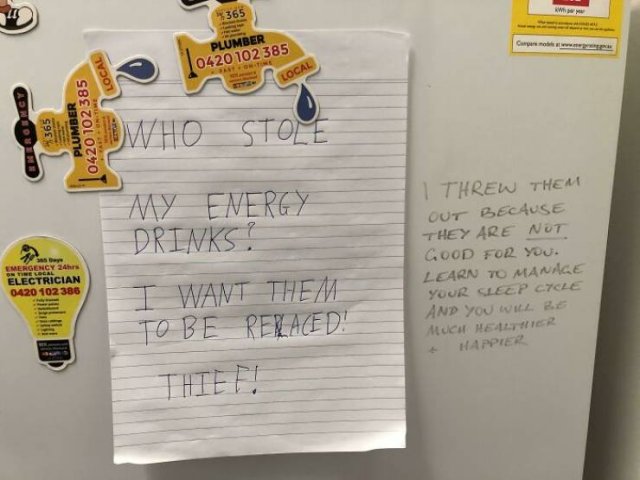 365
PLUMBER
0420 102 385
FAST • ON-TIME
LOCAL
365
PLUMBER
0420 102 385
LOCAL
EMERGENCY
WHO STOLE
MY ENERGY
DRINKS?
I WANT THEM
TO BE REPLACED!
THIEF!
I THREW THEM
OUT BECAUSE
THEY ARE NOT
GOOD FOR YOU.
LEARN TO MANAGE
YOUR SLEEP CYCLE
AND YOU WILL BE
MUCH HEALTHIER
+ HAPPIER
365 Days
EMERGENCY 24hrs
ON TIME LOCAL
ELECTRICIAN
0420 102 386
kWh per year
Compare models at www.energyrating.gov.au